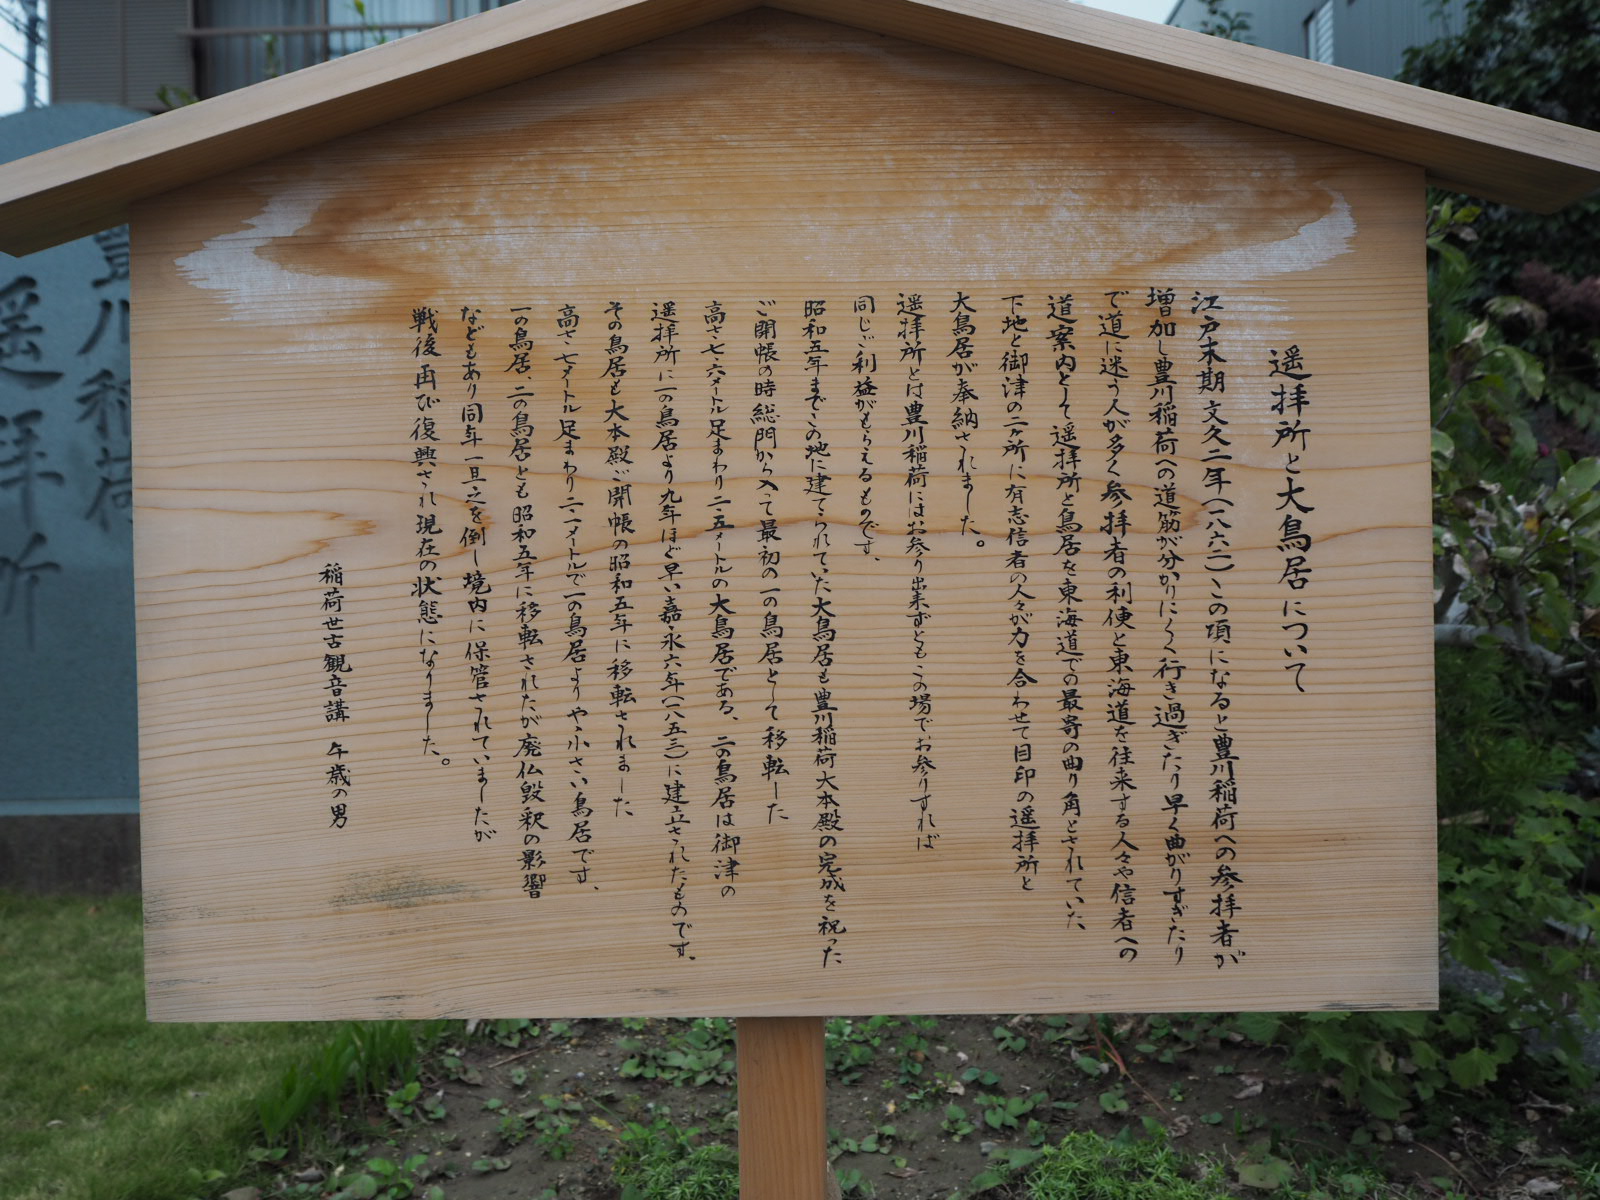 遥拝所と大鳥居について
江戸末期文久二年(一八六二)この項になると豊川稲荷への参拝者が
増加し豊川稲荷への道筋が分かりにくく行き過ぎたり早く曲がりすぎたり
で道に迷う人が多く参拝者の利便と東海道を往来する人々や信者への
道案内として遥拝所と鳥居を東海道での最寄の曲り角とされていた、
下地と御津の二ヶ所に有志信者の人々が力を合わせて目印の遥拝所と
大鳥居が奉納されました。
遥拝所とは豊川稲荷にはお参り出来ずともこの場でお参りすれば
同じご利益がもらえるものです、
昭和五年までこの地に建てられていた大鳥居も豊川稲荷大本殿の完成を祝った
ご開帳の時総門から入って最初の一の鳥居として移転した
高さ七・六メートル足まわり二・五メートルの大鳥居である、二の鳥居は御津の
遥拝所に一の鳥居より九年ほど早い嘉永六年(一八五三)に建立されたものです。
その鳥居も大本殿ご開帳の昭和五年に移転されました
高さ七メートル足まわり二・一メートルで一の鳥居よりやゝ小さい鳥居です、
一の鳥居、二の鳥居とも昭和五年に移転されたが廃仏毀釈の影響
などもあり同年一旦之を倒し境内に保管されていましたが
戦後再び復興され現在の状態になりました。
稲荷世古観音講 午歳の男
豊川稲荷
遥拝所